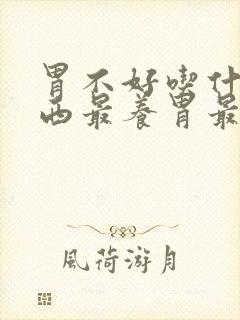 胃不好喫什
西最养胃最
風荷游月